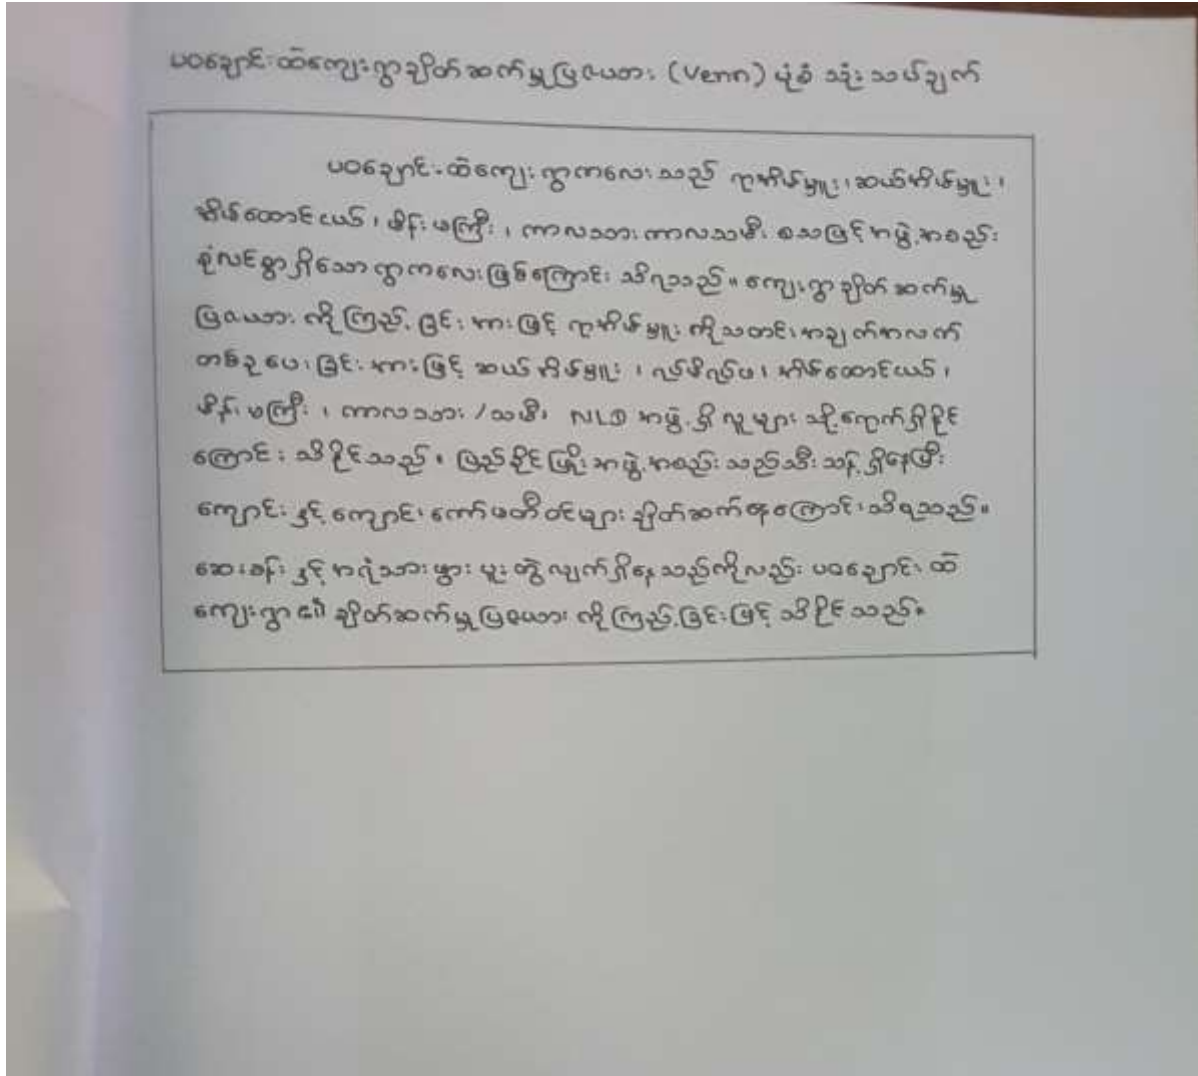 ပဝချောင်းထဲကျေးရွာချိတ်ဆက်မှုပြဇယား (Venn) ပုံစံ သုံးသပ်ချက်
ပဝချောင်းထဲကျေးရွာကလေးသည် ရာအိမ်မှူး၊ ဆယ်အိမ်မှူး၊
အိမ်ထောင်ငယ်၊ မိန်းမကြီး၊ ကာလသား ကာလသမီး စသဖြင့် အဖွဲ့အစည်း
စုံလင်စွာရှိသော ရွာကလေးဖြစ်ကြောင်း သိရသည်။ ကျေးရွာချိတ်ဆက်မှု
ပြဇယား ကိုကြည့်ခြင်းအားဖြင့် ရာအိမ်မှူး ကိုသတင်းအချက်အလက်
တစ်ခုပေးခြင်းအားဖြင့် ဆယ်အိမ်မှူး ၊ အိမ်ထောင်ငယ်၊
မိန်းမကြီး ၊ ကာလသား / သမီး၊ NLD အဖွဲ့ရှိ လူများ သို့ရောက်ရှိနိုင်
ကြောင်း သိနိုင်သည်။ ပြည်ခိုင်ဖြိုးအဖွဲ့အစည်းသည်သီးသန့်ရှိနေပြီး
ကျောင်းနှင့် ကျောင်းကော်မတီဝင်များ ချိတ်ဆက်နေကြောင်းသိရသည်။
ဆေးခန်းနှင့် အရံသားဖွား ပူးတွဲလျက်ရှိနေသည်ကိုလည်း ပဝချောင်းထဲ
ကျေးရွာ၏ ချိတ်ဆက်မှုပြဇယား ကိုကြည့်ခြင်းဖြင့် သိနိုင်သည်။